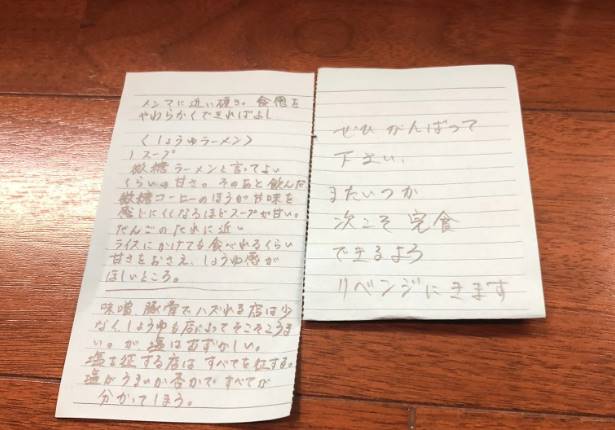 メンマに近い硬さ。食感を
やわらかくできればよし
〈しょうゆラーメン〉
1 スープ
微糖ラーメンと言ってよい
くらいの甘さ。そのあと飲んだ
微糖コーヒーのほうが甘味を
感じにくくなるほどスープが甘い。
だんごのたれに近い
ライスにかけても食べれるくらい
甘さをおさえ、しょうゆ感が
ほしいところ。
味噌、豚骨でハズれる店は少
なくしょうゆも店によってそこそこうま
い。が 塩はむずかしい。
塩を征する店は すべてを征する。
塩がうまいか否かで すべてが
分かってしまう。
ぜひ がんばって
下さい、
またいつか
次こそ 完食
できるよう
リベンジにきます